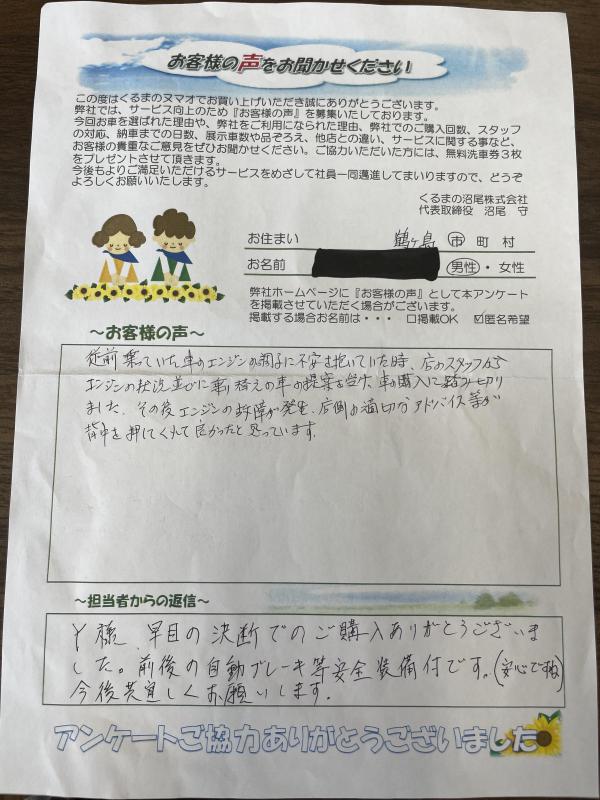 お客様の声をお聞かせください
この度はくるまのヌマオでお買い上げいただき誠にありがとうございます。
弊社では、サービス向上のため『お客様の声』を募集いたしております。
今回お車を選ばれた理由や、弊社をご利用になられた理由、弊社でのご購入回数、スタッフ
の対応、納車までの日数、展示車数や品ぞろえ、他店との違い、サービスに関する事など、
お客様の貴重なご意見をぜひお聞かせください。ご協力いただいた方には、無料洗車券3枚
をプレゼントさせて頂きます。
今後もよりご満足いただけるサービスをめざして社員一同邁進してまいりますので、どうぞ
よろしくお願いいたします。
くるまの沼尾株式会社
代表取締役 沼尾 守
お住まい 鶴ヶ島 市 町 村
お名前 男性・女性
弊社ホームページに『お客様の声』として本アンケート
を掲載させていただく場合がございます。
掲載する場合お名前は・・・ □掲載OK ☑匿名希望
～お客様の声～
従前乗っていた車のエンジンの調子に不安を抱いていた時、店のスタッフから
エンジンの状況並びに乗り替えの車の提案を受け、車の購入に踏み切り
ました。その後エンジンの故障が発生、店側の適切なアドバイス等が
背中を押してくれて良かったと思っています。
～担当者からの返信～
Y様、早目の決断でのご購入ありがとうございま
した。前後の自動ブレーキ等安全装備付です。(安心ですね)
今後共宜しくお願いします。
アンケートご協力ありがとうございました